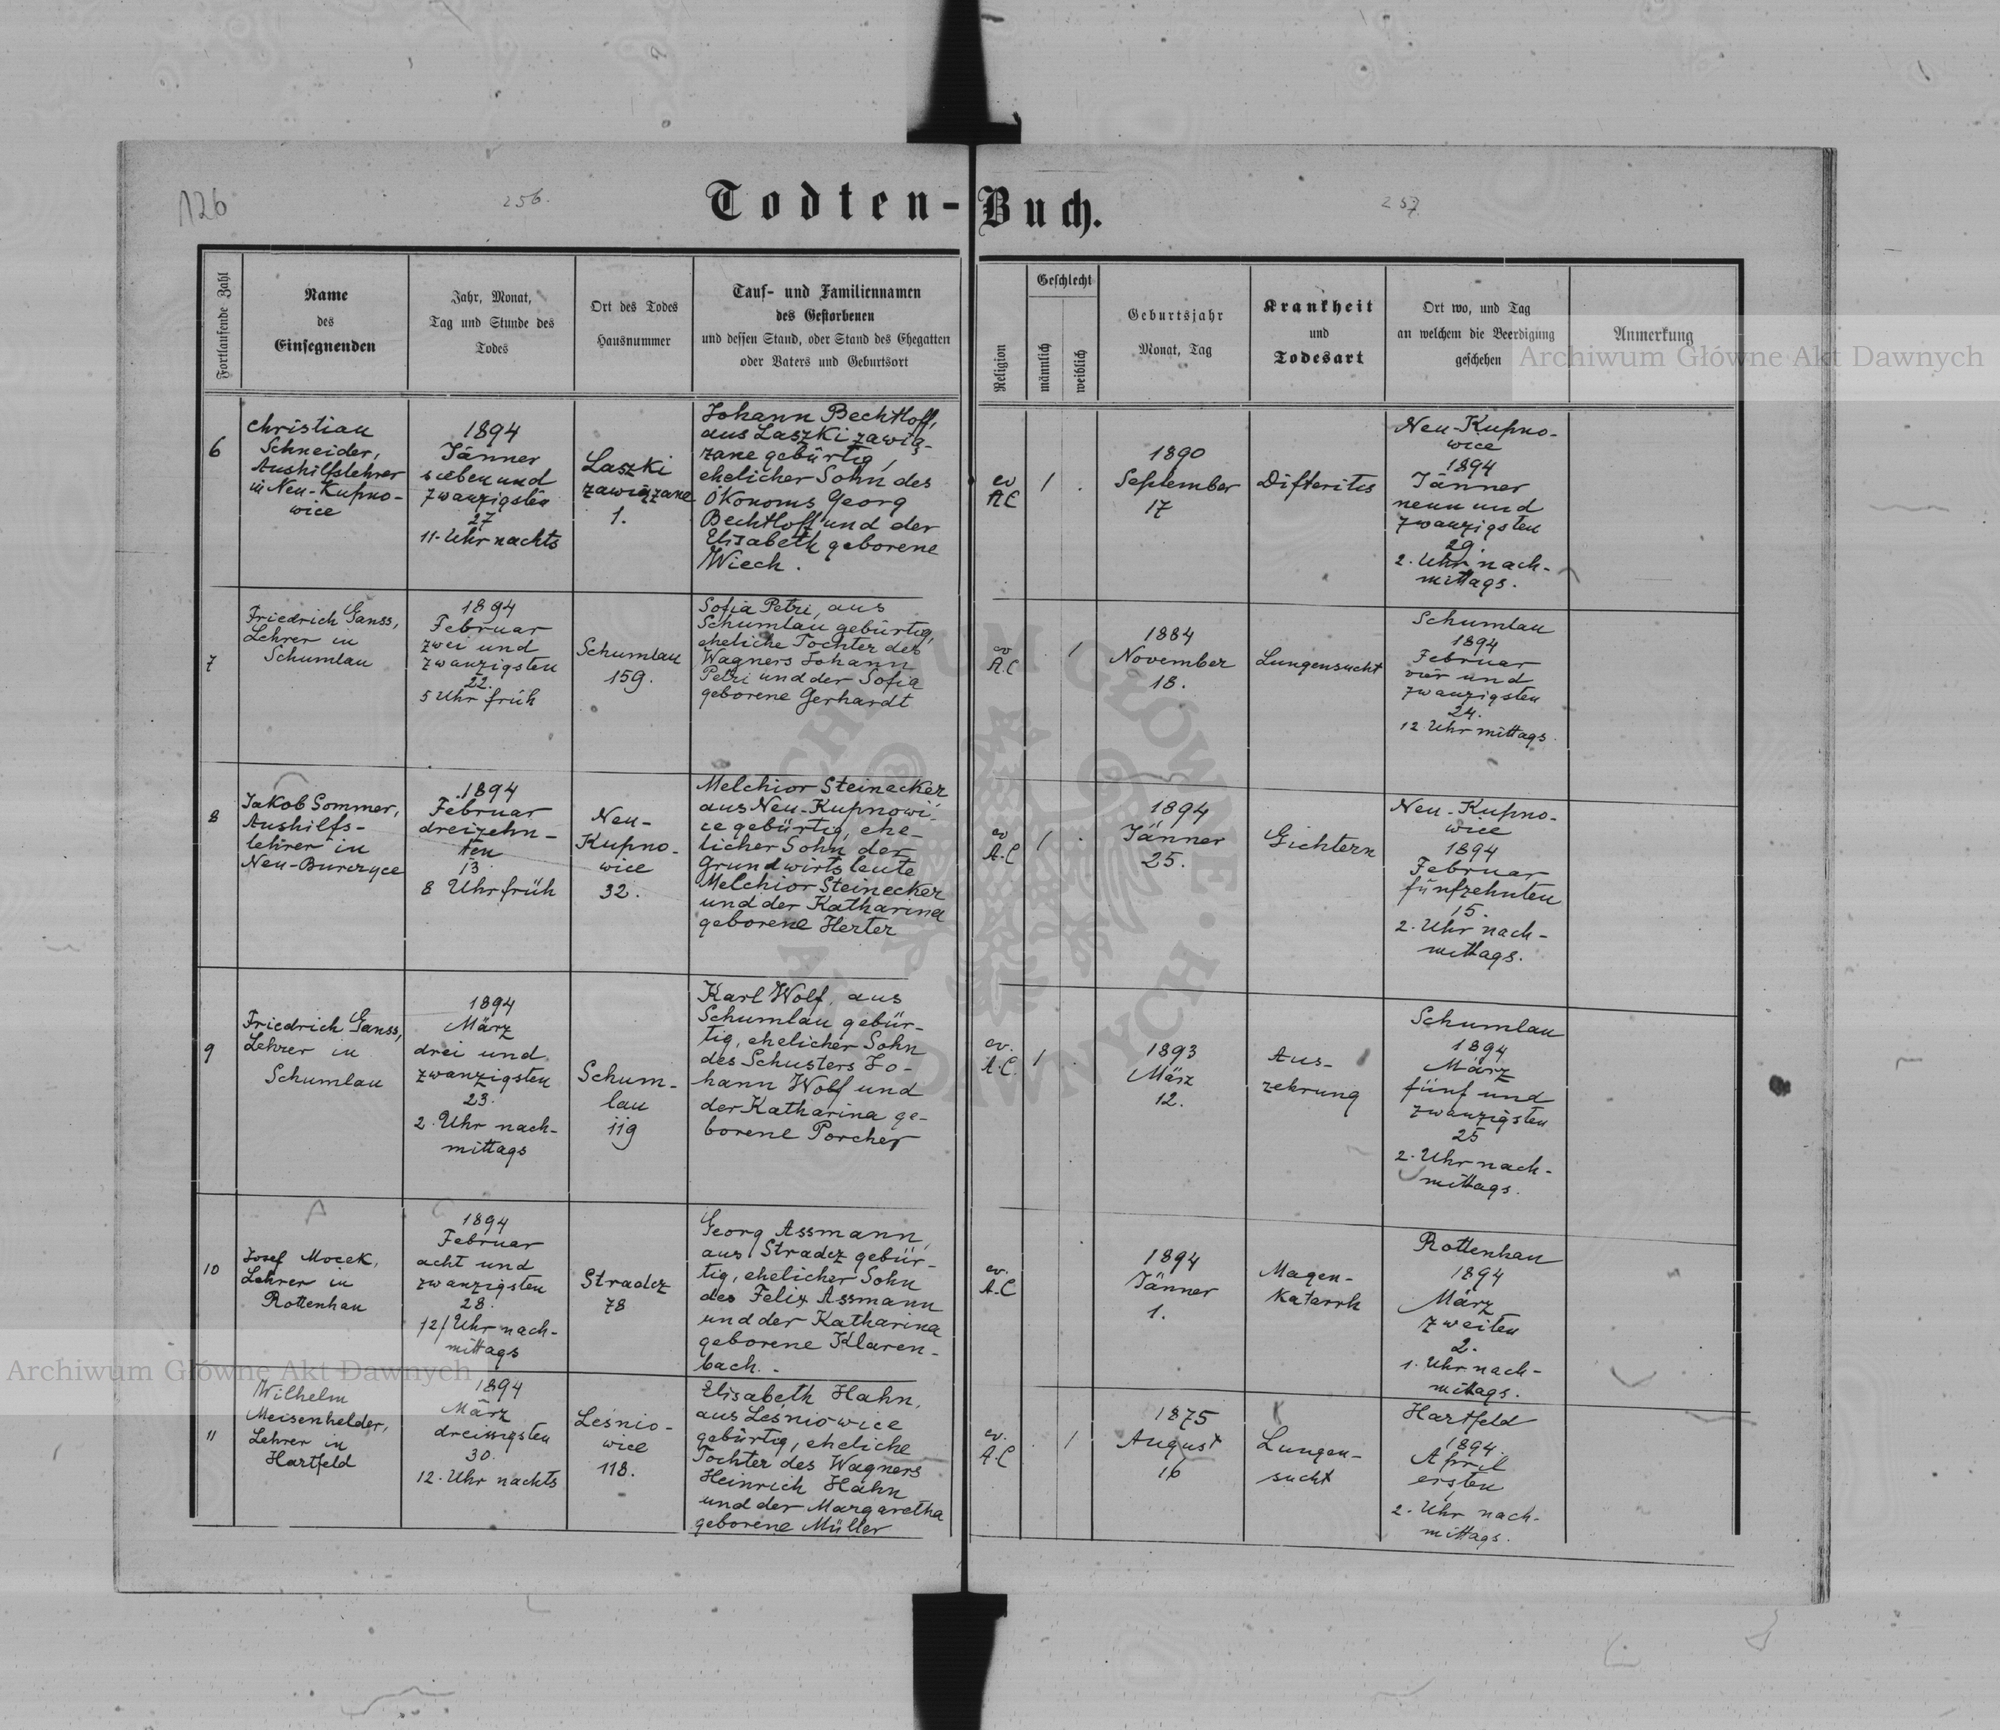 126
256.
257
Todten-Buch.
Fortlaufende Zahl
Name
des
Einsegnenden
Jahr, Monat,
Tag und Stunde des
Todes
Ort des Todes
Hausnummer
Tauf- und Familiennamen
des Gestorbenen
und dessen Stand, oder Stand des Ehegatten
oder Vaters und Geburtsort
Religion
Geschlecht
männlich
weiblich
Geburtsjahr
Monat, Tag
Krankheit
und
Todesart
Ort wo, und Tag
an welchem die Beerdigung
geschehen
Anmerkung
6
Christian
Schneider,
Aushilfslehrer
in Neu-Kupno-
wice
1894
Jänner
sieben und
zwanzigsten
27
11. Uhr nachts
Laszki
zawiązane
1.
Johann Bechtloff,
aus Laszki zawią-
zane gebürtig,
ehelicher Sohn des
Ökonoms Georg
Bechtloff und der
Elisabeth geborene
Wiech.
ev
A.C
1 .
1890
September
17
Difteritis
Neu-Kupno-
wice
1894
Jänner
neun und
zwanzigsten
29.
2. Uhr nach-
mittags.
7
Friedrich Ganss,
Lehrer in
Schumlau
1894
Februar
zwei und
zwanzigsten
22.
5 Uhr früh
Schumlau
159.
Sofia Petri, aus
Schumlau gebürtig,
eheliche Tochter des
Wagners Johann
Petri und der Sofia
geborene Gerhardt
ev
A.C
. 1
1884
November
18.
Lungensucht
Schumlau
1894
Februar
vier und
zwanzigsten
24.
12. Uhr mittags.
8
Jakob Sommer,
Aushilfs-
lehrer in
Neu-Burczyce
1894
Februar
dreizehn-
ten
13.
8 Uhr früh
Neu-
Kupno-
wice
32.
Melchior Steinecker
aus Neu-Kupnowi-
ce gebürtig, ehe-
licher Sohn der
Grundwirtsleute
Melchior Steinecker
und der Katharina
geborene Herter
ev
A.C
1 .
1894
Jänner
25.
Gichtern
Neu-Kupno-
wice
1894
Februar
fünfzehnten
15.
2. Uhr nach-
mittags.
9
Friedrich Ganss,
Lehrer in
Schumlau
1894
März
drei und
zwanzigsten
23.
2. Uhr nach-
mittags
Schum-
lau
119
Karl Wolf, aus
Schumlau gebür-
tig, ehelicher Sohn
des Schusters Jo-
hann Wolf und
der Katharina ge-
borene Porcher
ev.
A.C.
1 .
1893
März
12.
Aus-
zehrung
Schumlau
1894
März
fünf und
zwanzigsten
25
2. Uhr nach-
mittags.
10
Josef Mocek,
Lehrer in
Rottenhan
1894
Februar
acht und
zwanzigsten
28.
12/ Uhr nach-
mittags
Stradcz
78
Georg Assmann,
aus Stradcz gebür-
tig, ehelicher Sohn
des Felix Assmann
und der Katharina
geborene Klaren-
bach.
ev.
A.C
1894
Jänner
1.
Magen-
Katarrh
Rottenhan
1894
März
zweiten
2.
1. Uhr nach-
mittags.
11
Wilhelm
Meisenhelder,
Lehrer in
Hartfeld
1894
März
dreissigsten
30.
12. Uhr nachts
Leśnio-
wice
118.
Elisabeth Hahn,
aus Leśniowice
gebürtig, eheliche
Tochter des Wagners
Heinrich Hahn
und der Margaretha
geborene Müller
ev.
A.C
. 1
1875
August
16
Lungen-
sucht
Hartfeld
1894.
April
ersten
1
2. Uhr nach-
mittags.
Archiwum Główne Akt Dawnych
Archiwum Główne Akt Dawnych
ARCHIWUM GŁÓWNE AKT DAWNYCH